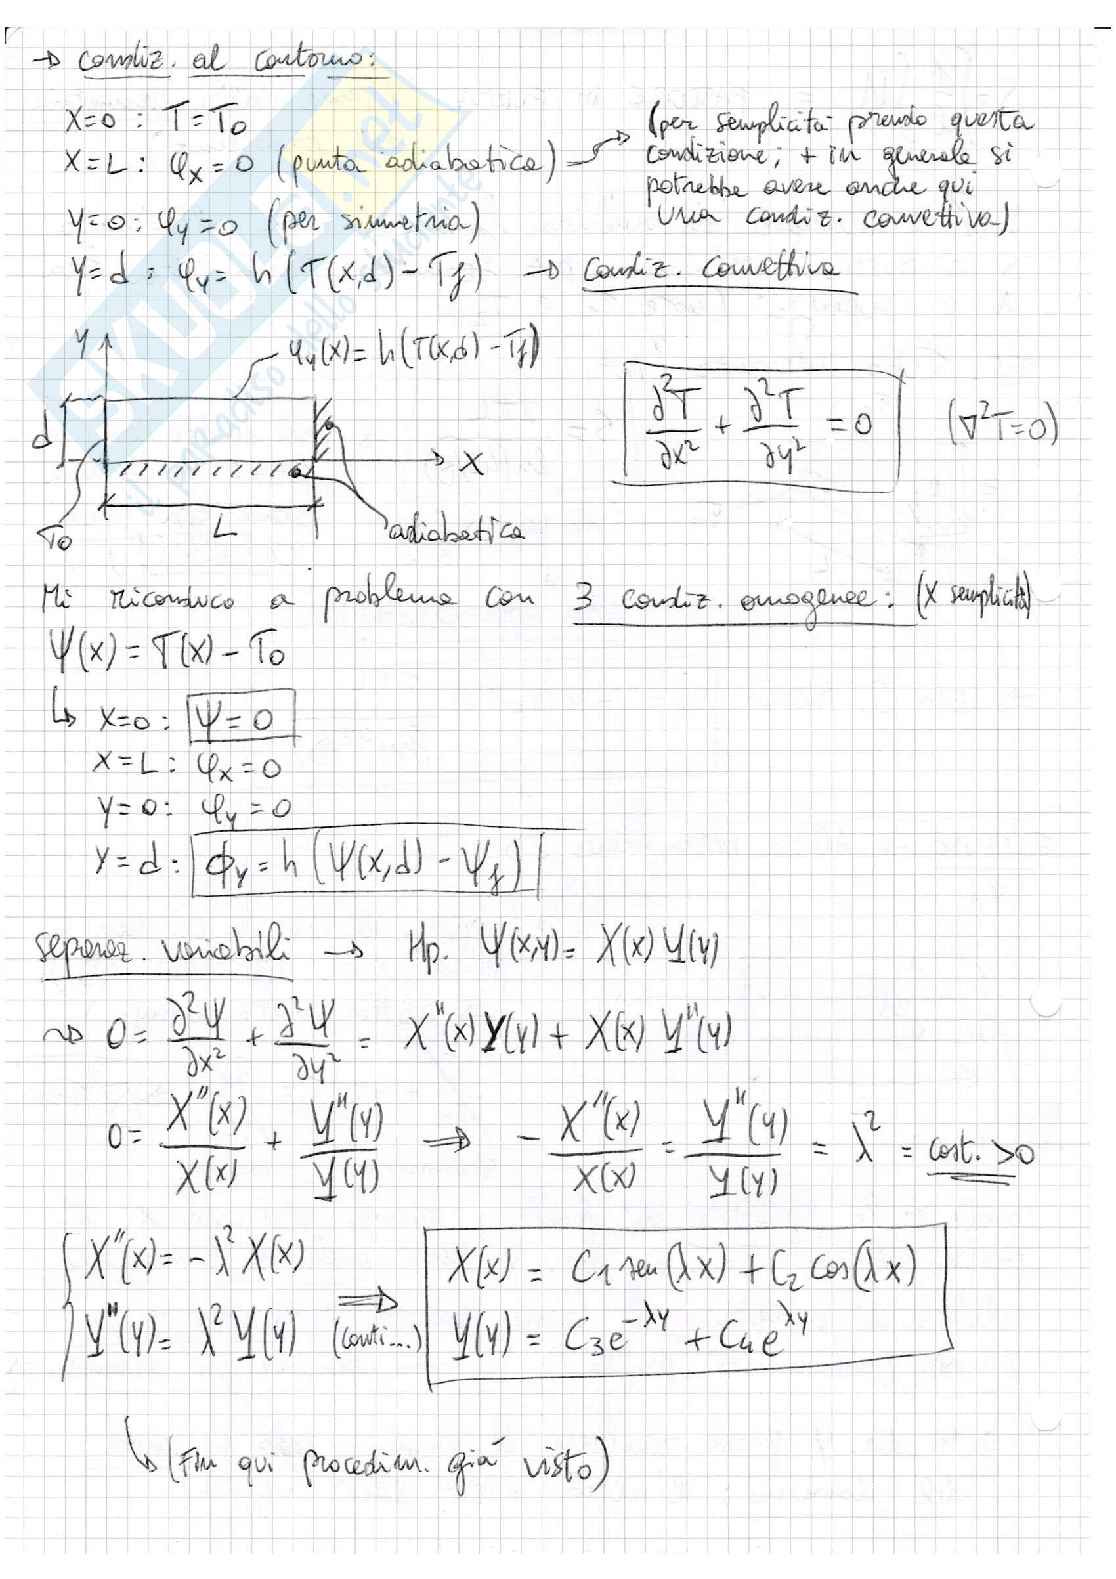 → condiz. al contorno:
x=0 : T=T0
x=L : φx=0 (punta adiabatica) → (per semplicità prendo questa
condizione; + in generale si
potrebbe avere anche qui
una condiz. convettiva)
y=0 : φy=0 (per simmetria)
y=d : φy= h(T(x,d) - Tf) → condiz. convettiva
SKUOLA.net
il paradiso dello studente
y
φy(x)= h(T(x,d) - Tf)
d
x
T0
L
adiabatica
∂²T/∂x² + ∂²T/∂y² = 0 (∇²T=0)
Mi riconduco a problema con 3 condiz. omogenee: (x semplicità)
Ψ(x) = T(x) - T0
↳ x=0 : Ψ=0
x=L : φx=0
y=0 : φy=0
y=d : ϕy=h(Ψ(x,d) - Ψf)
separaz. variabili → Hp. Ψ(x,y)= X(x)Y(y)
⇝ 0= ∂²Ψ/∂x² + ∂²Ψ/∂y² = X"(x)Y(y) + X(x)Y"(y)
0= X"(x)/X(x) + Y"(y)/Y(y) ⇒ - X"(x)/X(x) = Y"(y)/Y(y) = λ² = cost. >0
{ X"(x)= -λ² X(x)
Y"(y)= λ² Y(y) ⇒ (conti...)
X(x) = C1 sen(λx) + C2 cos(λx)
Y(y) = C3 e^-λy + C4 e^λy
↳ (Fin qui procedim. già visto)